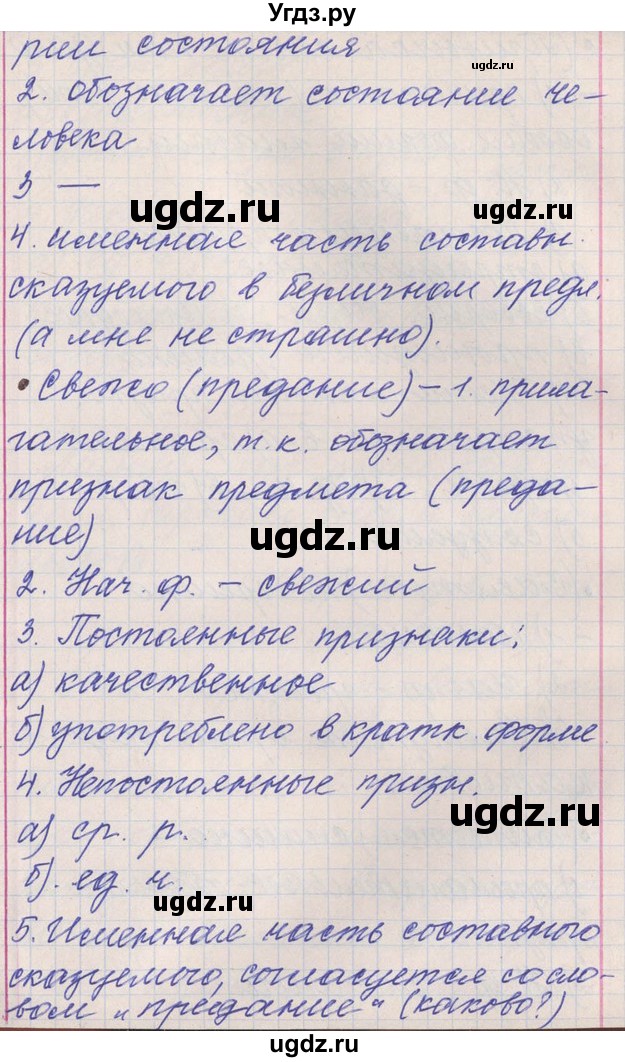 Угдз.ру
рии состояния
ugdz.ru
2. обозначает состояние че-
ловека
3 —
ugdz.ru
ugdz.ru
4. именная часть составн.
сказуемого в безличном предл.
(а мне не страшно).
• Свежо (предание) – 1. прила-
гательное, т.к. обозначает
ugdz.ru
признак предмета (преда-
ние)
ugdz.ru
2. Нач. ф. – свежий
3. Постоянные признаки:
а) качественное
б) употреблено в кратк. форме
4. Непостоянные призн.
ugdz.ru
а) ср. р.
б). ед. ч.
ugdz.ru
5. Именная часть составного
сказуемого, согласуется со сло-
вом „предание" (каково?)
ugdz.ru